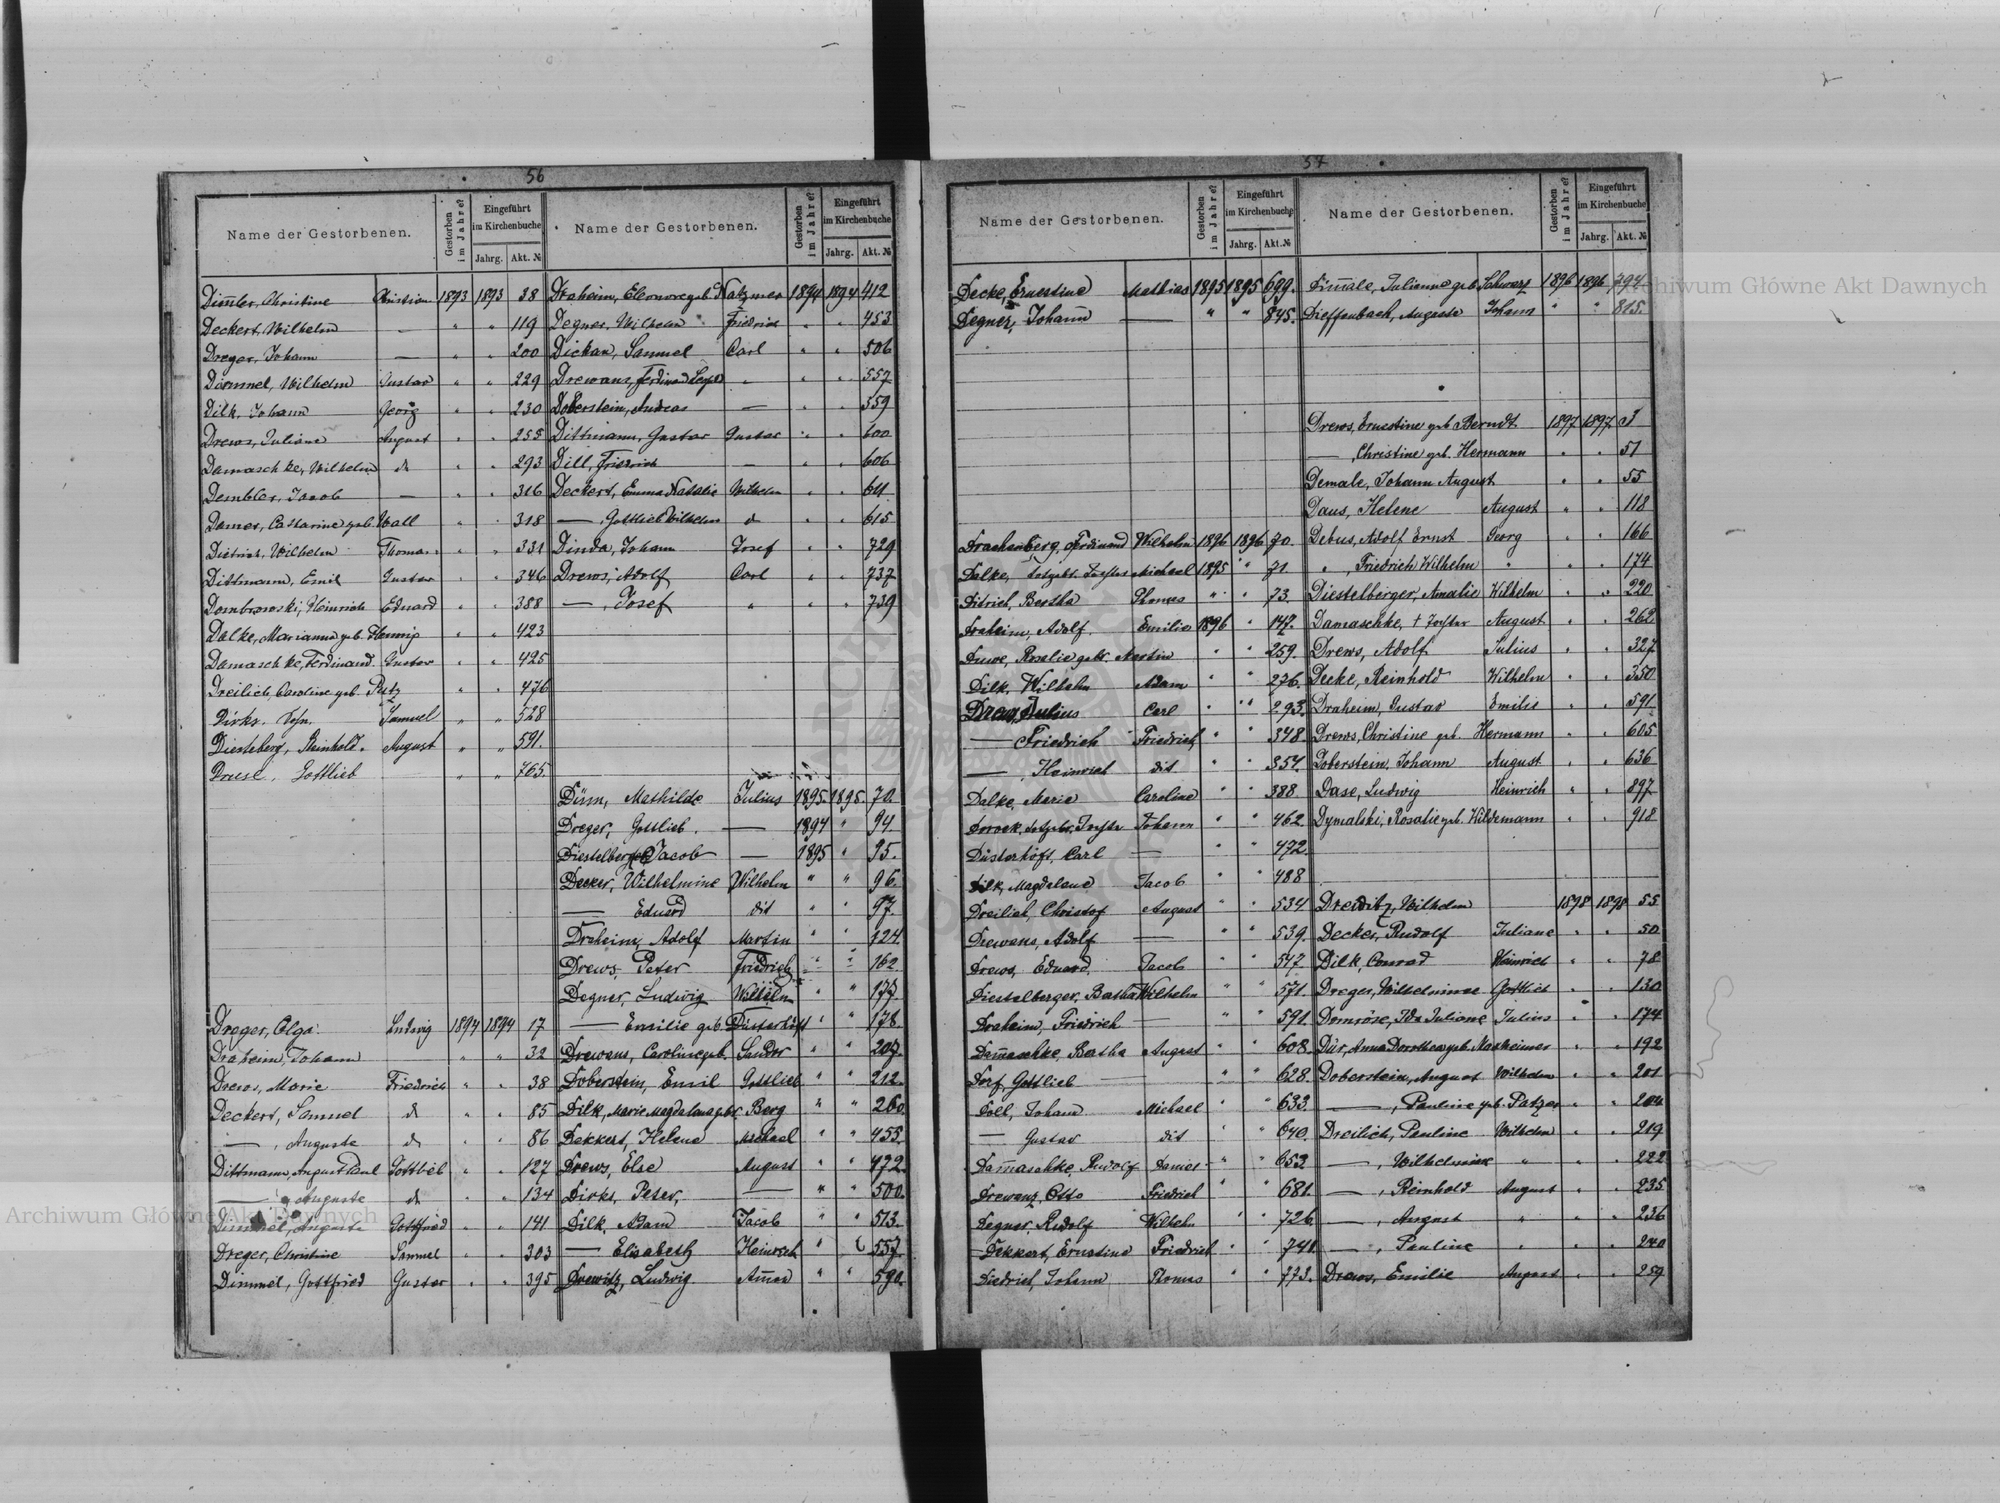 56
Name der Gestorbenen.
Gestorben im Jahre?
Eingeführt im Kirchenbuche
Jahrg. Akt. №
Dim̅ler, Christine Christian 1893 1893 38
Deckert, Wilhelm — " " 119
Dreger, Johann — " " 200
Dümmel, Wilhelm Gustav " " 229
Dilk, Johann Georg " " 230
Drews, Juliane August " " 255
Damaschke, Wilhelm do " " 293
Dembler, Jacob — " " 316
Damer, Catharine geb. Wall " " 318
Dietrich, Wilhelm Thomas " " 331
Dittmann, Emil Gustav " " 346
Dombrowski, Heinrich Eduard " " 388
Dalke, Marianna geb. Hennig " " 423
Damaschke, Ferdinand Gustav " " 425
Dreilich, Caroline geb. Putz " " 476
Dirks, Sohn. Samuel " " 528
Diesteberg, Reinhold. August " " 591.
Druse, Gottlieb " " 765.
Dreger, Olga Ludwig 1894 1894 17
Draheim, Johann " " 32
Drews, Marie Friedrich " " 38
Deckert, Samuel do " " 85
—, Auguste do " " 86
Dittmann, August Paul Gottlieb " " 127
— Auguste do " " 134
Dimmel, Auguste Gottfried " " 141
Dreger, Christine Samuel " " 303
Dimmel, Gottfried Gustav " " 395
Name der Gestorbenen.
Gestorben im Jahre?
Eingeführt im Kirchenbuche
Jahrg. Akt. №
Draheim, Eleonore geb. Natzmer 1894 1894 412
Degner, Wilhelm Friedrich " " 453
Dickau, Samuel Carl " " 506
Drewanz, Ferdinand " " 557
Doberstein, Andreas — " " 559
Dittmann, Gustav Gustav " " 600
Dill, Friedrich — " " 606
Deckert, Emma Natalie Wilhelm " " 611
—, Gottlieb Wilhelm do " " 615
Dinda, Johann Josef " " 729
Drews, Adolf Carl " " 737
—, Josef " " " 739
Dünn, Mathilde Julius 1895. 1895. 70.
Dreger, Gottlieb. — 1894 " 94.
Diestelberger Jacob — 1895 " 95.
Decker, Wilhelmine Wilhelm " " 96.
— Eduard dit " " 97.
Draheim, Adolf Martin " " 124.
Drews Peter Friedrich " " 162.
Degner, Ludwig Wilhelm " " 177.
— Emilie geb. Düsterhöft " " 178.
Drewans, Caroline geb. Sandor " " 207.
Doberstein, Emil Gottlieb " " 212.
Dilk, Marie Magdalena geb. Berg " " 260.
Dekkert, Helene Michael " " 455.
Drews, Else August " " 472.
Dirks, Peter, — " " 500.
Dilk, Adam Jacob " " 513.
— Elisabeth Heinrich " " 557.
Drewitz, Ludwig " " 590.
57
Name der Gestorbenen.
Gestorben im Jahre?
Eingeführt im Kirchenbuche
Jahrg. Akt. №
Decke, Ernestine Mathias 1895 1895 699.
Degner, Johann — " " 845.
Drachenberg, Ferdinand Wilhelm 1896 1896 70.
Dalke, Todgeb. Tochter Michael 1895 " 71.
Ditrich, Bertha Thomas " " 73.
Draheim, Adolf. Emilie 1896 " 147.
Duwe, Rosalie gebr. Martin " " 259.
Dilk, Wilhelm Adam " " 276.
Drews, Julius Carl " " 293.
— Friedrich Friedrich " " 348.
—, Heinrich dit " " 357.
Dalke, Maria Caroline " " 388
Johann " " 462.
Düsterhöft, Carl — " " 472.
Dilk, Magdalene Jacob " " 488
Dreilich, Christof August " " 534
Drewans, Adolf — " " 539.
Drews, Eduard, Jacob " " 547
Diestelberger, Bertha Wilhelm " " 571.
Draheim, Friedrich — " " 591.
Dam̅aschke, Bertha August " " 608.
Dorf, Gottlieb — " " 628.
Doll, Johann Michael " " 633.
— Gustav dit " " 640.
Damaschke, Rudolf Daniel " " 653
Drewanz, Otto Friedrich " " 681.
Degner, Rudolf Wilhelm " " 726.
Dekkert, Ernestine Friedrich " " 741.
Diedrich, Johann Thomas " " 773.
Name der Gestorbenen.
Gestorben im Jahre?
Eingeführt im Kirchenbuche
Jahrg. Akt. №
Dim̅ale, Julianne geb. Schwarz 1896 1896 794
Dieffenbach, Auguste Johann " " 815.
Drews, Ernestine geb. Berndt 1897 1897 3
—, Christine geb. Hermann " " 51
Demale, Johann August " " 55
Daus, Helene August " " 118
Debus, Adolf Ernst Georg " " 166
", Friedrich Wilhelm " " " 174
Diestelberger, Amalie Wilhelm " " 220
Damaschke, + Tochter August " " 262
Drews, Adolf Julius " " 327
Decke, Reinhold Wilhelm " " 350
Draheim, Gustav Emilie " " 591.
Drews, Christine geb. Hermann " " 605
Doberstein, Johann August " " 636
Dase, Ludwig Heinrich " " 897
Dymalski, Rosalie geb. Hildemann " " 918
Drewitz, Wilhelm 1898 1898 55
Decker, Rudolf Juliane " " 50
Dilk, Conrad Heinrich " " 78
Dreger, Wilhelmine Gottlieb " " 130
Domröse, Ida Juliane Julius " " 174
Dür, Anna Dorothea geb. Manheimer " " 192
Doberstein, August Wilhelm " " 201
—, Pauline geb. Patzer " " 204
Dreilich, Pauline Wilhelm " " 219
—, Wilhelmine " " " 222
—, Reinhold August " " 235
—, August " " " 236
—, Pauline " " " 240
Drews, Emilie August " " 259
Archiwum Główne Akt Dawnych
Archiwum Główne Akt Dawnych